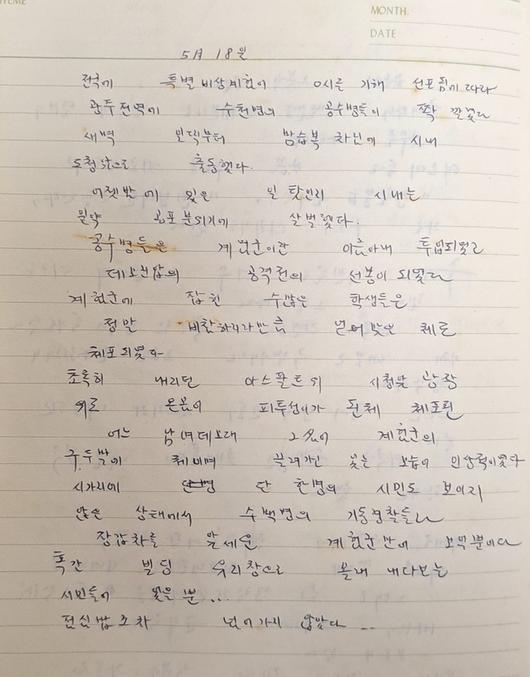 MONTH.
DATE
5月 18일
전국에 특별비상계엄이 0시를 기해 선포됨에 따라
광주전역에 수천명의 공수병들이 쫙 깔렸고
새벽 부터 차림에 시내
도청앞으로 출동했다.
어젯밤에 있은 일 탓인지 시내는
공포분위기에 살벌했다.
공수병들은 계엄군이란 이름아래 투입되었고
데모진압의 공격전의 선봉이 되었고
계엄군에 잡힌 수많은 학생들은
정말 비참하리만큼 얻어맞은 체로
체포되었다
초록히 내리던 아스팔트의 시청앞 광장
위로 온몸이 피투성이가 된체 체포된
어느 남여데모대 계엄군의
구두발에 체이며 끌려가던 모습이 인상적이었다
시가지에 단 한명의 시민도 보이지
않은 상태에서 수백명의 기동경찰들과
장갑차를 앞세운 계엄군만이 보일뿐이다
빌딩 유리창으로 몰래 내다보는
시민들이 있을 뿐...
넘어가지 않았다...